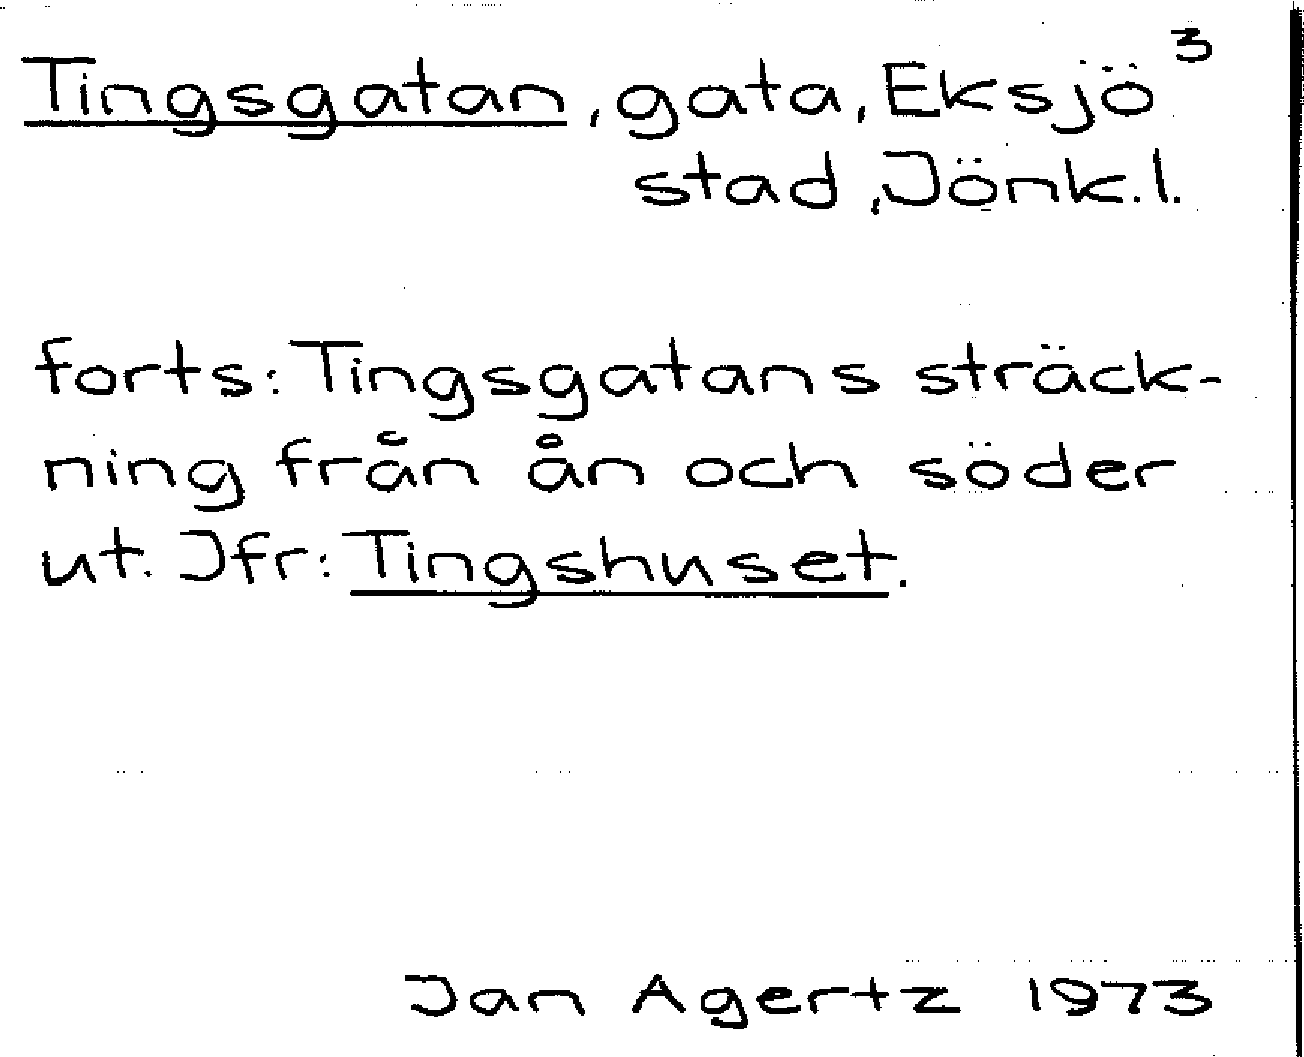 Tingsgatan, gata, Eksjö 3
stad, Jönk.l.
forts: Tingsgatans sträck-
ning från ån och söder
ut. Jfr: Tingshuset.
Jan Agertz 1973